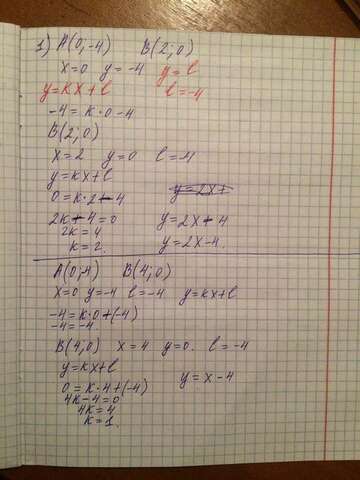 1) A(0;-4) B(2;0)
x=0 y=-4 y=l
y=kx+l l=-4
-4=k·0-4
B(2;0)
x=2 y=0 l=-4
y=kx+l
0=k·2-4 y=2x+
2k-4=0 y=2x-4
2k=4
k=2. y=2x-4.
A(0;4) B(4;0)
x=0 y=-4 l=-4 y=kx+l
-4=k·0+(-4)
-4=-4
B(4;0) x=4 y=0. l=-4
y=kx+l
0=k·4+(-4) y=x-4
4k-4=0
4k=4
k=1.